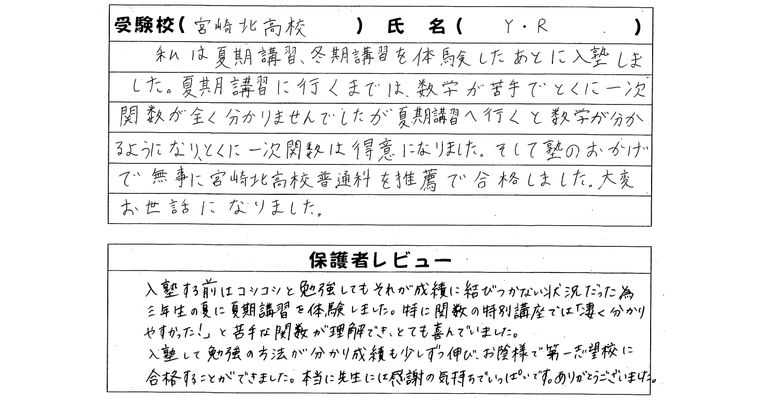 受験校（宮崎北高校）氏名（Y・R）
私は夏期講習、冬期講習を体験したあとに入塾しま
した。夏期講習に行くまでは、数学が苦手でとくに一次
関数が全く分かりませんでしたが夏期講習へ行くと数学が分か
るようになり、とくに一次関数は得意になりました。そして塾のおかげ
で無事に宮崎北高校普通科を推薦で合格しました。大変
お世話になりました。
保護者レビュー
入塾する前はコツコツと勉強してもそれが成績に結びつかない状況だった為
三年生の夏に夏期講習を体験しました。特に関数の特別講座では「凄く分かり
やすかった！」と苦手な関数が理解でき、とても喜んでいました。
入塾して勉強の方法が分かり成績も少しずつ伸び、お陰様で第一志望校に
合格することができました。本当に先生には感謝の気持ちでいっぱいです。ありがとうございました。